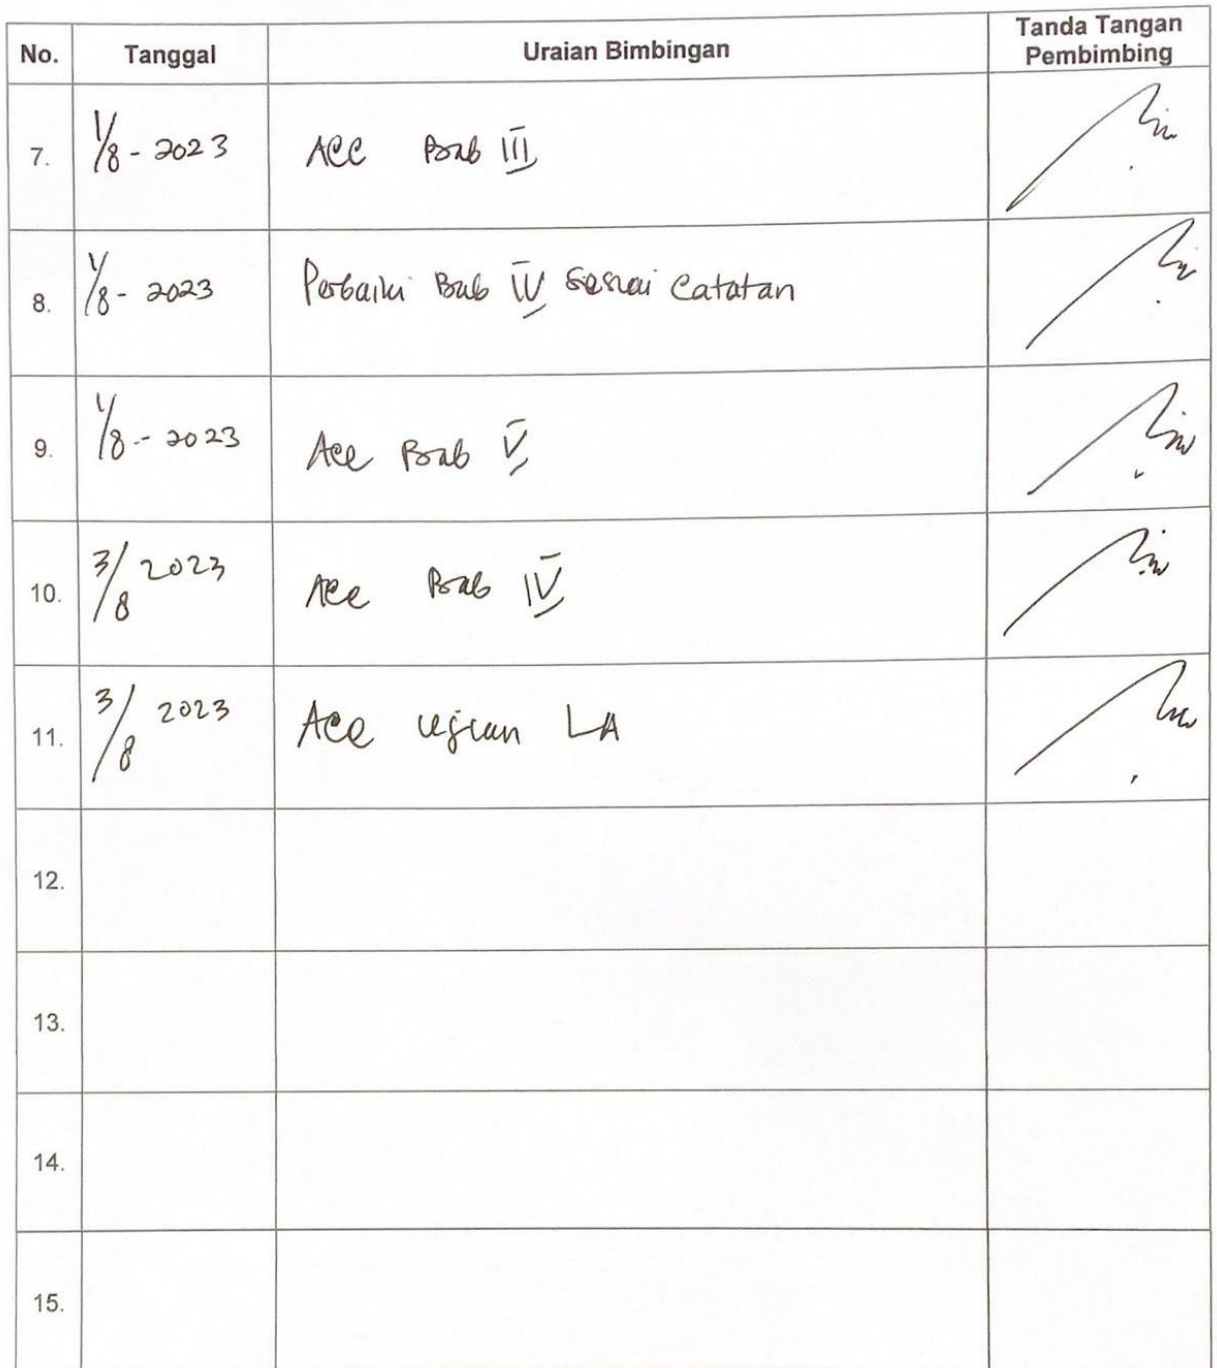 No. Tanggal Uraian Bimbingan Tanda Tangan
Pembimbing
7. 1/8 - 2023 Acc Bab III
8. 1/8 - 2023 Perbaiki Bab IV sesuai catatan
9. 1/8 - 2023 Acc Bab V
10. 3/8 2023 Acc Bab IV
11. 3/8 2023 Acc ujian LA
12.
13.
14.
15.